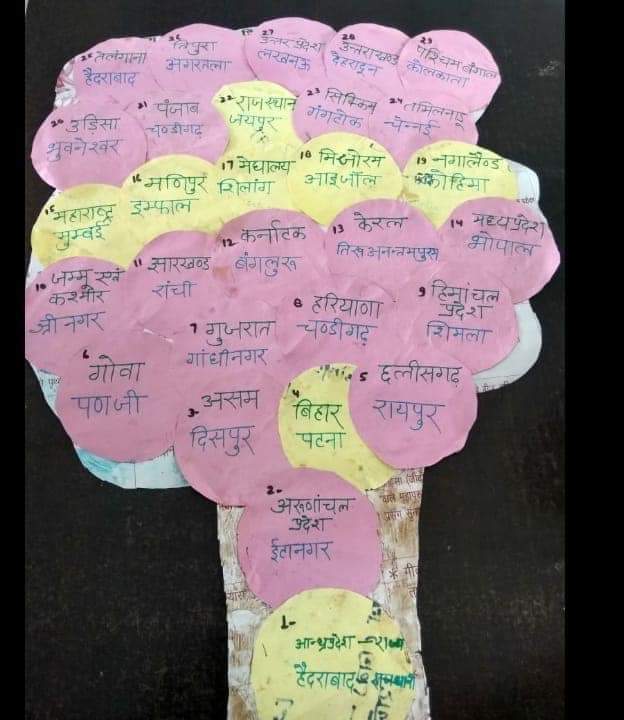 25 तेलंगाना
हैदराबाद
26 त्रिपुरा
अगरतला
27 उत्तर प्रदेश
लखनऊ
28 उत्तराखण्ड
देहरादून
29 पश्चिम बंगाल
कोलकाता
20 उड़िसा
भुवनेश्वर
21 पंजाब
चण्डीगढ़
22 राजस्थान
जयपुर
23 सिक्किम
गंगटोक
24 तमिलनाडू
चेन्नई
15 महाराष्ट्र
मुम्बई
16 मणिपुर
इम्फाल
17 मेघालय
शिलांग
18 मिजोरम
आइजॉल
19 नगालैण्ड
कोहिमा
10 जम्मू एवं
कश्मीर
श्रीनगर
11 झारखण्ड
रांची
12 कर्नाटक
बंगलुरू
13 केरल
तिरूअनन्तमपुरम
14 मध्यप्रदेश
भोपाल
6 गोवा
पणजी
7 गुजरात
गांधीनगर
8 हरियाणा
चण्डीगढ़
9 हिमांचल
प्रदेश
शिमला
3- असम
दिसपुर
4 बिहार
पटना
5 छत्तीसगढ़
रायपुर
2- अरूणांचल
प्रदेश
ईटानगर
1-
आन्ध्रप्रदेश – राज्य
हैदराबाद – राजधानी